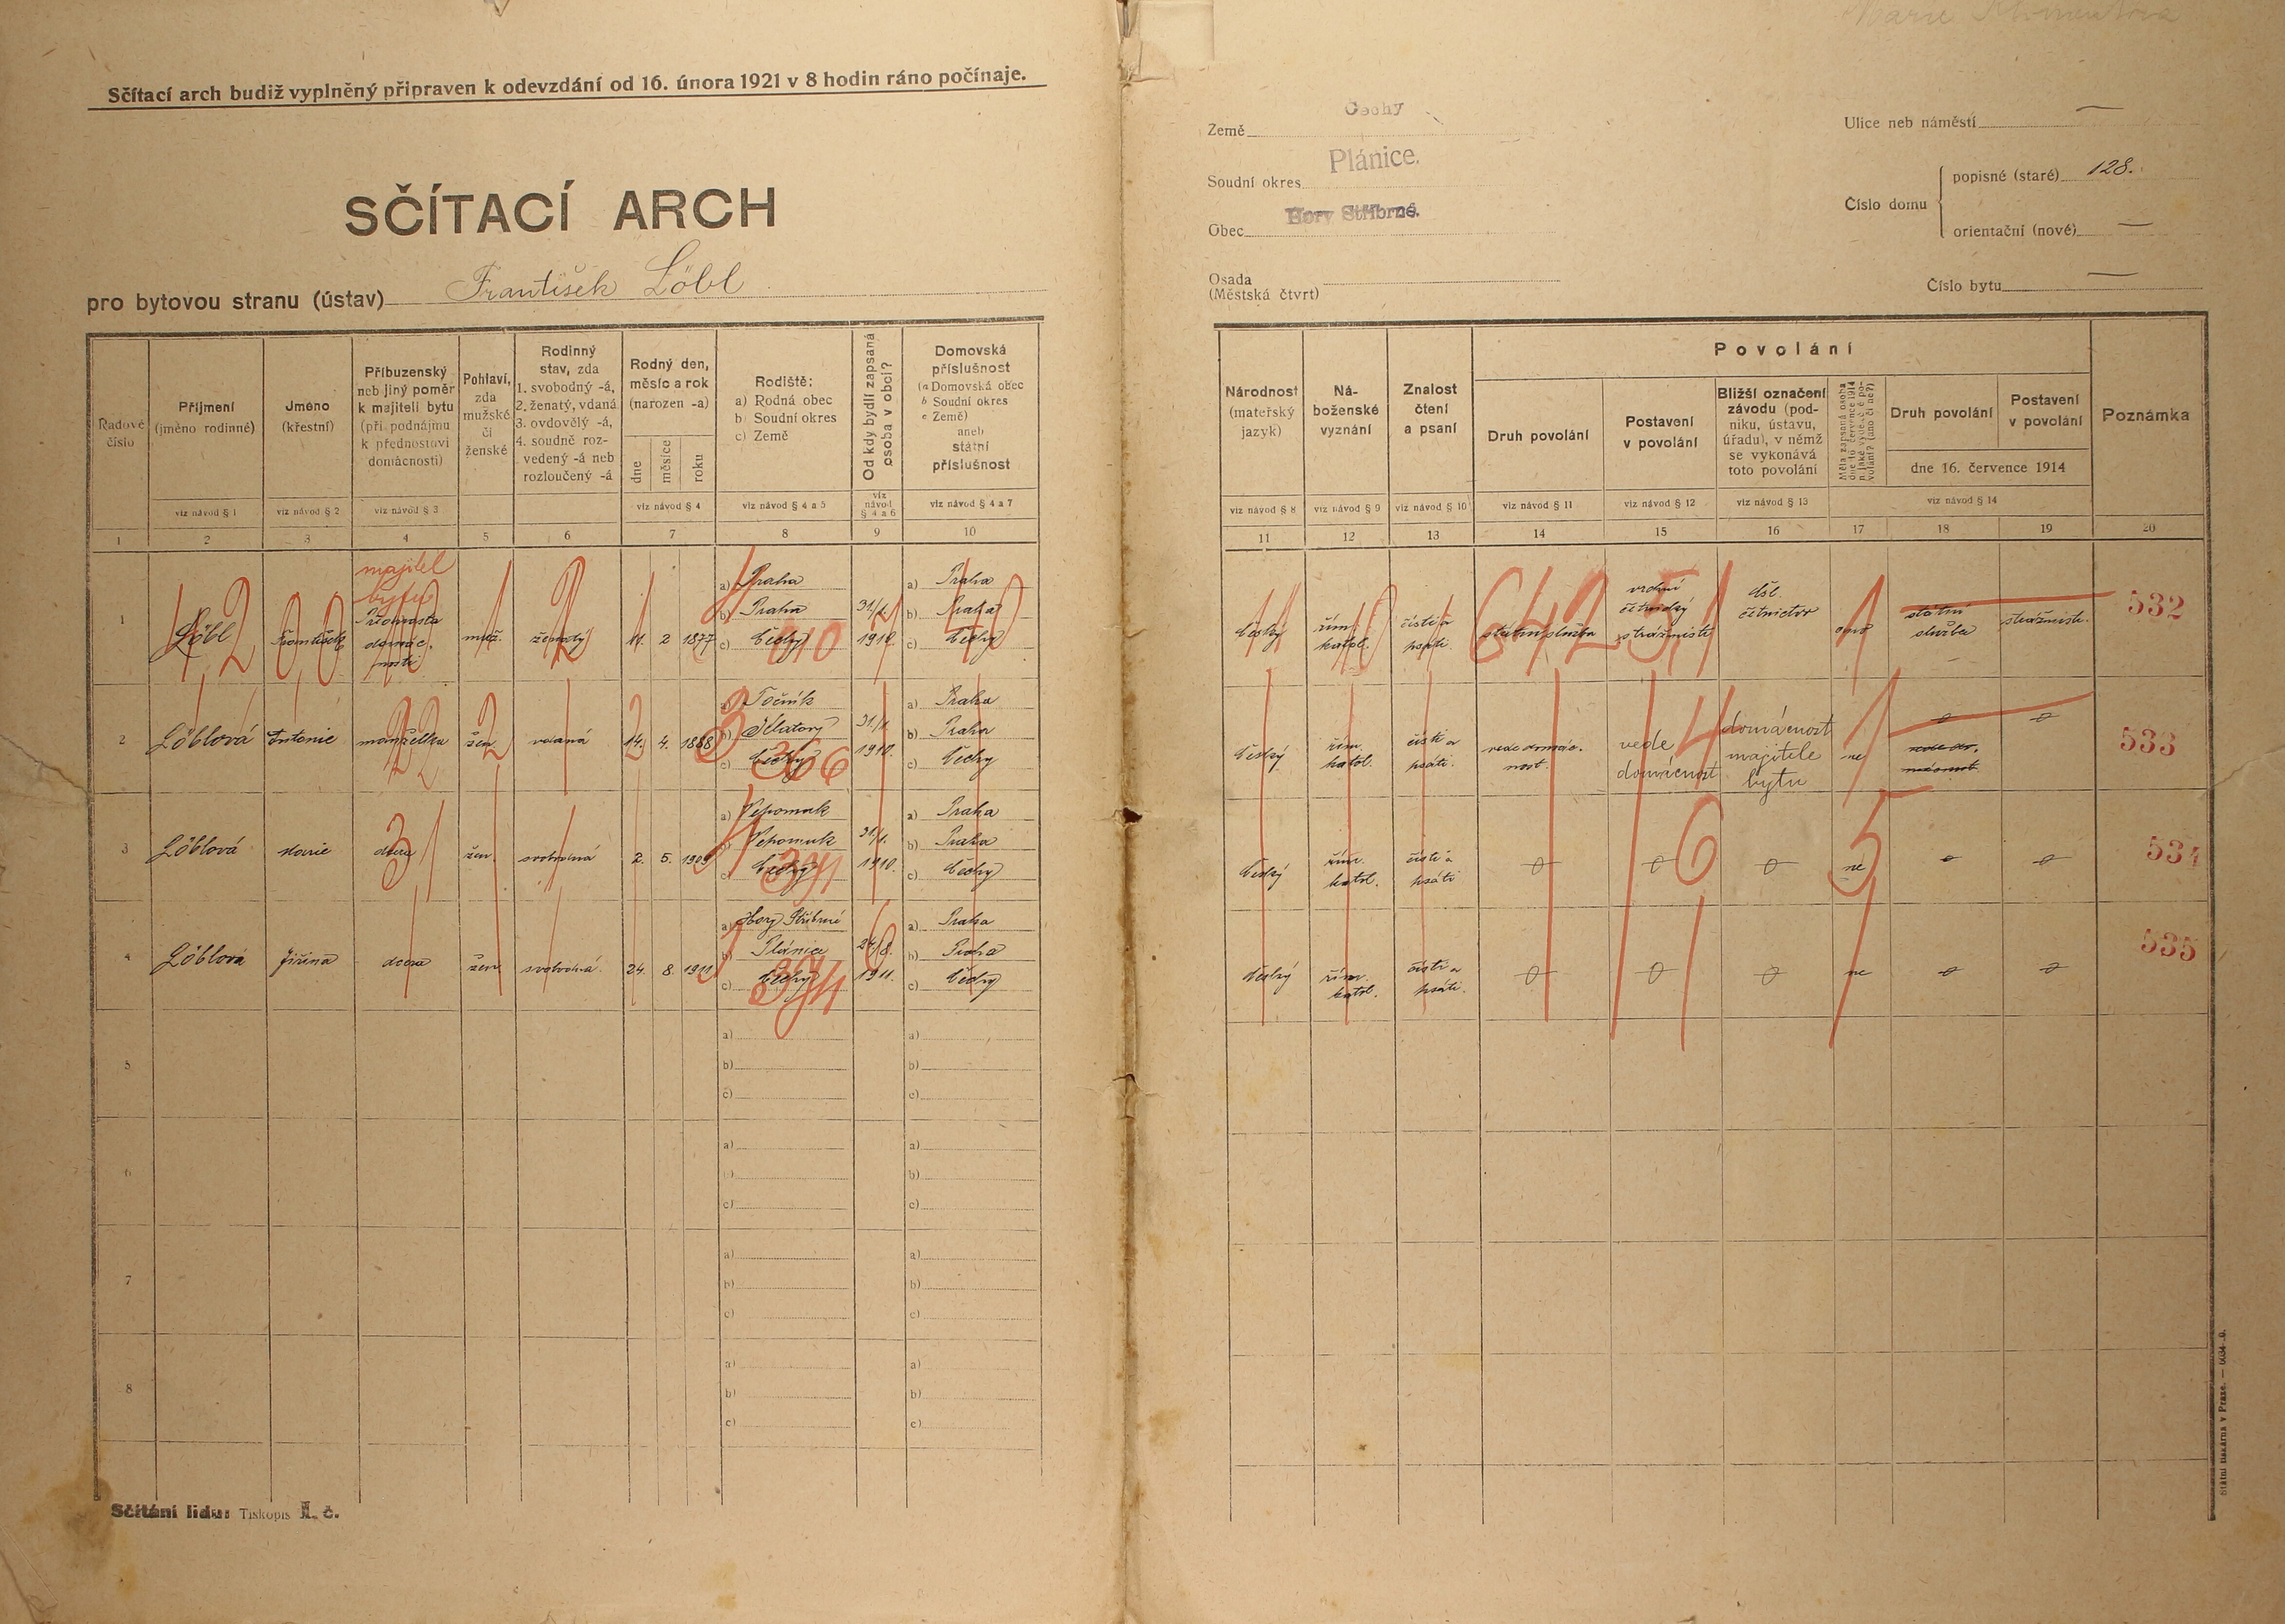 Marie
Sčítací arch budiž vyplněný připraven k odevzdání od 16. února 1921 v 8 hodin ráno počínaje.
SČÍTACÍ ARCH
pro bytovou stranu (ústav) František Löbl
Země Čechy
Soudní okres Plánice.
Obec Hory Stříbrné.
Osada
(Městská čtvrt)
Ulice neb náměstí —
Číslo domu
popisné (staré) 128.
orientační (nové) —
Číslo bytu —
Řadové číslo
Příjmení (jméno rodinné)
Jméno (křestní)
Příbuzenský neb jiný poměr k majiteli bytu (při podnájmu k přednostovi domácnosti)
Pohlaví, zda mužské či ženské
Rodinný stav, zda 1. svobodný -á, 2. ženatý, vdaná 3. ovdovělý -á, 4. soudně rozvedený -á neb rozloučený -á
Rodný den, měsíc a rok (narozen -a)
dne měsíce roku
Rodiště: a) Rodná obec b) Soudní okres c) Země
Od kdy bydlí zapsaná osoba v obci?
Domovská příslušnost (a Domovská obec b Soudní okres c Země) aneb státní příslušnost
viz návod § 1 viz návod § 2 viz návod § 3 viz návod § 4 viz návod § 4 a 5 viz návod § 4 a 6 viz návod § 4 a 7
1 2 3 4 5 6 7 8 9 10
Národnost (mateřský jazyk)
Náboženské vyznání
Znalost čtení a psaní
Povolání
Druh povolání
Postavení v povolání
Bližší označení závodu (podniku, ústavu, úřadu), v němž se vykonává toto povolání
Měla zapsaná osoba dne 16. července 1914 nějaké výdělečné povolání? (ano či ne?)
Druh povolání
Postavení v povolání
dne 16. července 1914
Poznámka
viz návod § 8 viz návod § 9 viz návod § 10 viz návod § 11 viz návod § 12 viz návod § 13 viz návod § 14
11 12 13 14 15 16 17 18 19 20
1 Löbl František majitel bytu Přednosta domácnosti muž. ženatý 11. 2 1877 a) Praha b) Praha c) Čechy 31/1. 1910. a) Praha b) Praha c) Čechy
český řím. katol. čísti a psáti. státní služba vrchní četnický strážmistr čsl. četnictvo ano státní služba strážmistr. 532
1,2 0,0 1 2 1 010 10 11 10 11 642 51 1
2 Löblová Antonie manželka žen. vdaná 14. 4. 1888 a) Točník b) Klatovy c) Čechy 31/1. 1910. a) Praha b) Praha c) Čechy
český řím. katol. čísti a psáti. vede domácnost. vede domácnost domácnost majitele bytu ne 0 0 vede domácnost 533
22 2 366 4
3 Löblová Marie dcera žen. svobodná 2. 5. 1909 a) Nepomuk b) Nepomuk c) Čechy 31/1. 1910. a) Praha b) Praha c) Čechy
český řím. katol. čísti a psáti 0 0 0 ne 0 0 534
31 391 6 5
4 Löblová Jiřina dcera žen. svobodná. 24. 8. 1911 a) Hory Stříbrné b) Plánice c) Čechy 24/8. 1911. a) Praha b) Praha c) Čechy
český řím. katol. čísti a psáti. 0 0 0 ne 0 0 535
394
5 a) b) c) a) b) c)
6 a) b) c) a) b) c)
7 a) b) c) a) b) c)
8 a) b) c) a) b) c)
Sčítání lidu: Tiskopis I. č.
Státní tiskárna v Praze.